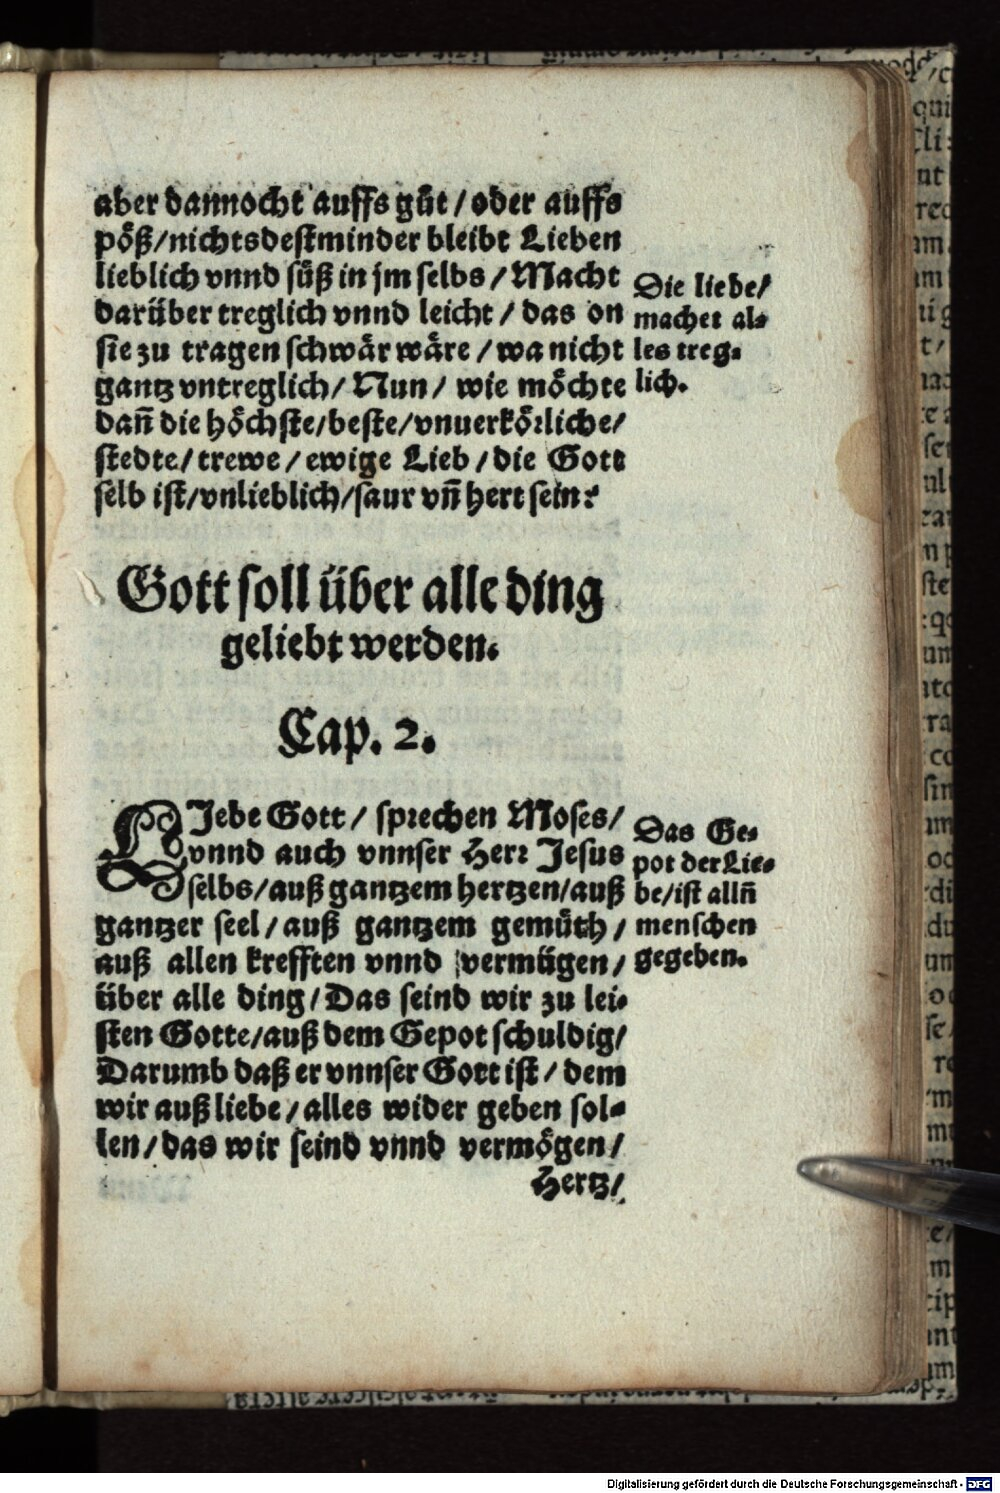 aber dannocht auffs gůt / oder auffs
pöß/nichtsdestminder bleibt Lieben
lieblich vnnd süß in jm selbs / Macht
darüber treglich vnnd leicht / das on
sie zu tragen schwär wäre / wa nicht
gantz vntreglich/ Nun/ wie möchte
dañ die höchste/beste/vnuerkörliche/
stedte/ trewe / ewige Lieb / die Gott
selb ist/vnlieblich/saur vñ hert sein?
Die liebe/
machet al-
les treg-
lich.
Gott soll über alle ding
geliebt werden.
Cap. 2.
LJebe Gott / sprechen Moses/
vnnd auch vnnser Herr Jesus
selbs/auß gantzem hertzen/auß
gantzer seel / auß gantzem gemüth /
auß allen krefften vnnd vermügen/
über alle ding / Das seind wir zu lei-
sten Gotte/auß dem Gepot schuldig/
Darumb daß er vnnser Gott ist / dem
wir auß liebe / alles wider geben sol-
len/das wir seind vnnd vermögen/
Hertz/
Das Ge-
pot der Lie-
be/ist allñ
menschen
gegeben.
Digitalisierung gefördert durch die Deutsche Forschungsgemeinschaft - DFG